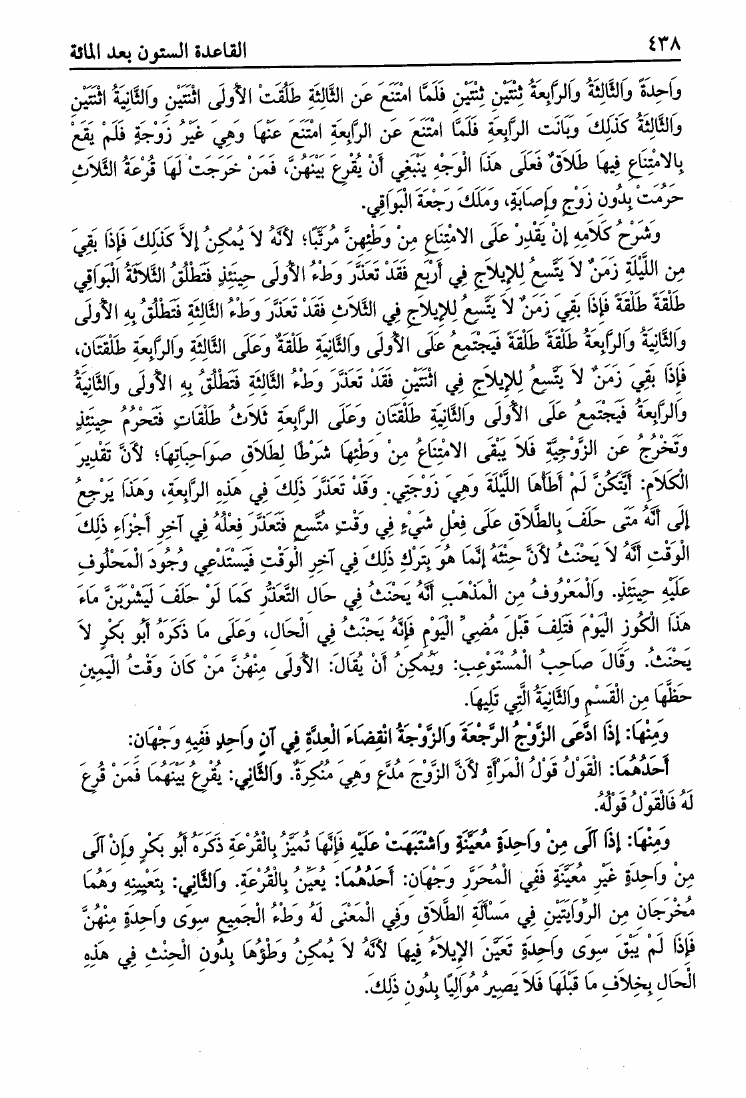 ٤٣٨
القاعدة الستون بعد المائة
وَاحِدَةً وَالثَّالِثَةُ وَالرَّابِعَةُ ثِنْتَيْنِ ثِنْتَيْنِ فَلَمَّا امْتَنَعَ عَنِ الثَّالِثَةِ طَلُقَتْ الأُولَى اثْنَتَيْنِ وَالثَّانِيَةُ اثْنَتَيْنِ
وَالثَّالِثَةُ كَذَلِكَ وَبَانَت الرَّابِعَةِ فَلَمَّا امْتَنَعَ عَنِ الرَّابِعَةِ امْتَنَعَ عَنْهَا وَهِيَ غَيْرُ زَوْجَةٍ فَلَمْ يَقَعْ
بِالامْتِنَاعِ فِيهَا طَلَاقٌ فَعَلَى هَذَا الْوَجْهِ يَنْبَغِي أَنْ يُقْرِعَ بَيْنَهُنَّ، فَمَنْ خَرَجَتْ لَهَا قُرْعَةُ الثَّلَاثِ
حَرُمَتْ بِدُونِ زَوْجٍ وَإِصَابَةٍ، وَمَلَكَ رَجْعَةَ الْبَوَاقِي.
وَشَرْحُ كَلَامِهِ إِنْ يَقْدِرْ عَلَى الامْتِنَاعِ مِنْ وَطْئِهِنَّ مُرَتَّبًا؛ لأَنَّهُ لاَ يُمْكِنُ إِلاَّ كَذَلِكَ فَإِذَا بَقِيَ
مِنِ اللَّيْلَةِ زَمَنٌ لاَ يَتَّسِعُ لِلإِيلَاجِ فِي أَرْبَعٍ فَقَدْ تَعَذَّرَ وَطْءُ الأُولَى حِينَئِذٍ فَتَطْلُقُ الثَّلَاثَةُ الْبَوَاقِي
طَلْقَةً طَلْقَةً فَإِذَا بَقِيَ زَمَنٌ لاَ يَتَّسِعُ لِلإِيلَاجِ فِي الثَّلَاثِ فَقَدْ تَعَذَّرَ وَطْءُ الثَّالِثَةِ فَتَطْلُقُ بِهِ الأُولَى
وَالثَّانِيَةُ وَالرَّابِعَةُ طَلْقَةً طَلْقَةً فَيَجْتَمِعُ عَلَى الأُولَى وَالثَّانِيَةِ طَلْقَةٌ وَعَلَى الثَّالِثَةِ وَالرَّابِعَةِ طَلْقَتَانِ،
فَإِذَا بَقِيَ زَمَنٌ لاَ يَتَّسِعُ لِلإِيلَاجِ فِي اثْنَتَيْنِ فَقَدْ تَعَذَّرَ وَطْءُ الثَّالِثَةِ فَتَطْلُقُ بِهِ الأُولَى وَالثَّانِيَةُ
وَالرَّابِعَةُ فَيَجْتَمِعُ عَلَى الأُولَى وَالثَّانِيَةِ طَلْقَتَانِ وَعَلَى الرَّابِعَةِ ثَلَاثُ طَلَقَاتٍ فَتَحْرُمُ حِينَئِذٍ
وَتَخْرُجُ عَنِ الزَّوْجِيَّةِ فَلَا يَبْقَى الامْتِنَاعُ مِنْ وَطْئِهَا شَرْطًا لِطَلَاقِ صَوَاحِبَاتِهَا؛ لأَنَّ تَقْدِيرَ
الْكَلَامِ: أَيَّتُكُنَّ لَمْ أَطَأْهَا اللَّيْلَةَ وَهِيَ زَوْجَتِي. وَقَدْ تَعَذَّرَ ذَلِكَ فِي هَذِهِ الرَّابِعَةِ، وَهَذَا يَرْجِعُ
إِلَى أَنَّهُ مَتَى حَلَفَ بِالطَّلَاقِ عَلَى فِعْلِ شَيْءٍ فِي وَقْتٍ مُتَّسِعٍ فَتَعَذَّرَ فِعْلُهُ فِي آخِرِ أَجْزَاءِ ذَلِكَ
الْوَقْتِ أَنَّهُ لاَ يَحْنَثُ لأَنَّ حِنْثَهُ إِنَّمَا هُوَ بِتَرْكِ ذَلِكَ فِي آخِرِ الْوَقْتِ فَيَسْتَدْعِي وُجُودَ الْمَحْلُوفِ
عَلَيْهِ حِينَئِذٍ. وَالْمَعْرُوفُ مِنِ الْمَذْهَبِ أَنَّهُ يَحْنَثُ فِي حَالِ التَّعَذُّرِ كَمَا لَوْ حَلَفَ لَيَشْرَبَنَّ مَاءَ
هَذَا الْكُوزِ الْيَوْمَ فَتَلِفَ قَبْلَ مُضِيِّ الْيَوْمِ فَإِنَّهُ يَحْنَثُ فِي الْحَالِ، وَعَلَى مَا ذَكَرَهُ أَبُو بَكْرٍ لاَ
يَحْنَثُ. وَقَالَ صَاحِبُ الْمُسْتَوْعِبِ: وَيُمْكِنُ أَنْ يُقَالَ: الأُولَى مِنْهُنَّ مَنْ كَانَ وَقْتُ الْيَمِينِ
حَظَّهَا مِنِ الْقَسْمِ وَالثَّانِيَةُ الَّتِي تَلِيهَا.
وَمِنْهَا: إِذَا ادَّعَى الزَّوْجُ الرَّجْعَةَ وَالزَّوْجَةُ انْقِضَاءَ الْعِدَّةِ فِي آنٍ وَاحِدٍ فَفِيهِ وَجْهَانِ:
أَحَدُهُمَا: الْقَوْلُ قَوْلُ الْمَرْأَةِ لأَنَّ الزَّوْجَ مُدَّعٍ وَهِيَ مُنْكِرَةٌ. وَالثَّانِي: يُقْرِعُ بَيْنَهُمَا فَمَنْ قُرِعَ
لَهُ فَالْقَوْلُ قَوْلُهُ.
وَمِنْهَا: إِذَا آلَى مِنْ وَاحِدَةٍ مُعَيَّنَةٍ وَاشْتَبَهَتْ عَلَيْهِ فَإِنَّهَا تُمَيَّزُ بِالْقُرْعَةِ ذَكَرَهُ أَبُو بَكْرٍ وَإِنْ آلَى
مِنْ وَاحِدَةٍ غَيْرِ مُعَيَّنَةٍ فَفِي الْمُحَرَّرِ وَجْهَانِ: أَحَدُهُمَا: يُعَيِّنُ بِالْقُرْعَةِ. وَالثَّانِي: بِتَعْيِينِهِ وَهُمَا
مُخْرَجَانِ مِنِ الرِّوَايَتَيْنِ فِي مَسْأَلَةِ الطَّلَاقِ وَفِي الْمَعْنَى لَهُ وَطْءُ الْجَمِيعِ سِوَى وَاحِدَةٍ مِنْهُنَّ
فَإِذَا لَمْ يَبْقَ سِوَى وَاحِدَةٍ تَعَيَّنَ الإِيلَاءُ فِيهَا لأَنَّهُ لاَ يُمْكِنُ وَطْؤُهَا بِدُونِ الْحِنْثِ فِي هَذِهِ
الْحَالِ بِخِلَافِ مَا قَبْلَهَا فَلَا يَصِيرُ مُوَالِيًا بِدُونِ ذَلِكَ.